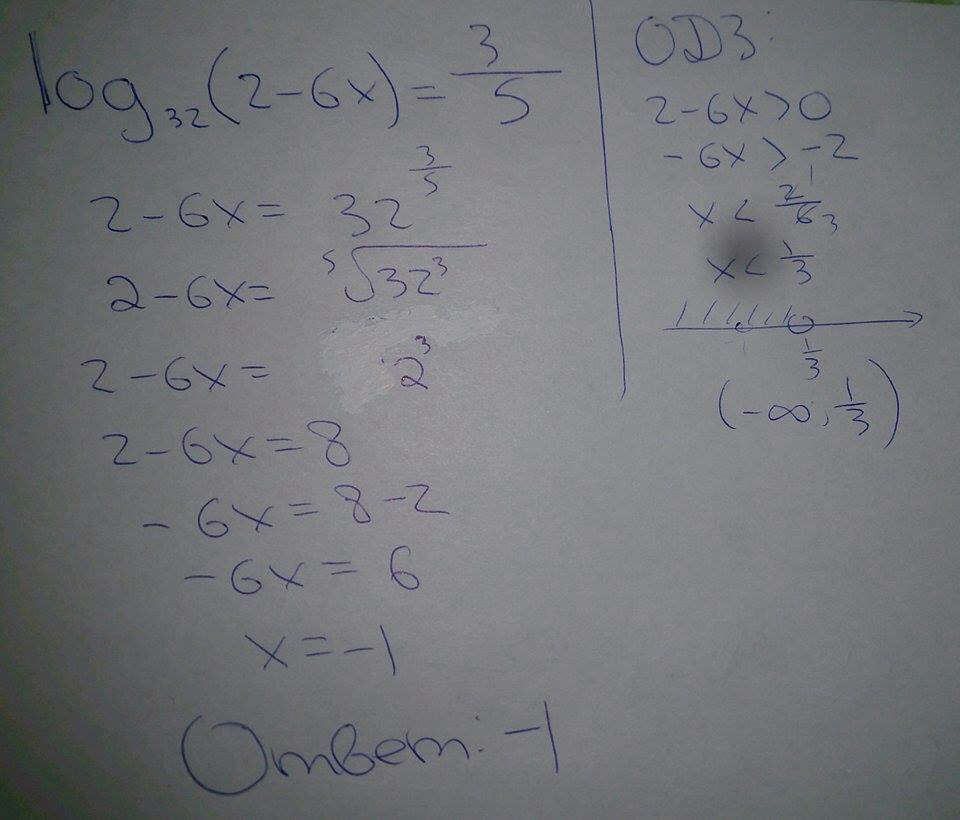 log₃₂(2-6x)=3/5
2-6x= 32^(3/5)
2-6x= ⁵√32³
2-6x= 2³
2-6x=8
-6x=8-2
-6x=6
x=-1
Ответ: -1
ОДЗ:
2-6x>0
-6x>-2
x< 2/6 1 3
x< 1/3
1/3
(-∞; 1/3)